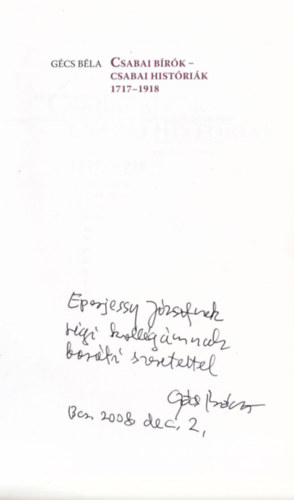 GÉCS BÉLA CSABAI BÍRÓK –
CSABAI HISTÓRIÁK
1717–1918
Eperjessy Józsefnek
régi kollegámnak
baráti szeretettel
Gécs Béla
Bcs. 2008 dec. 2,